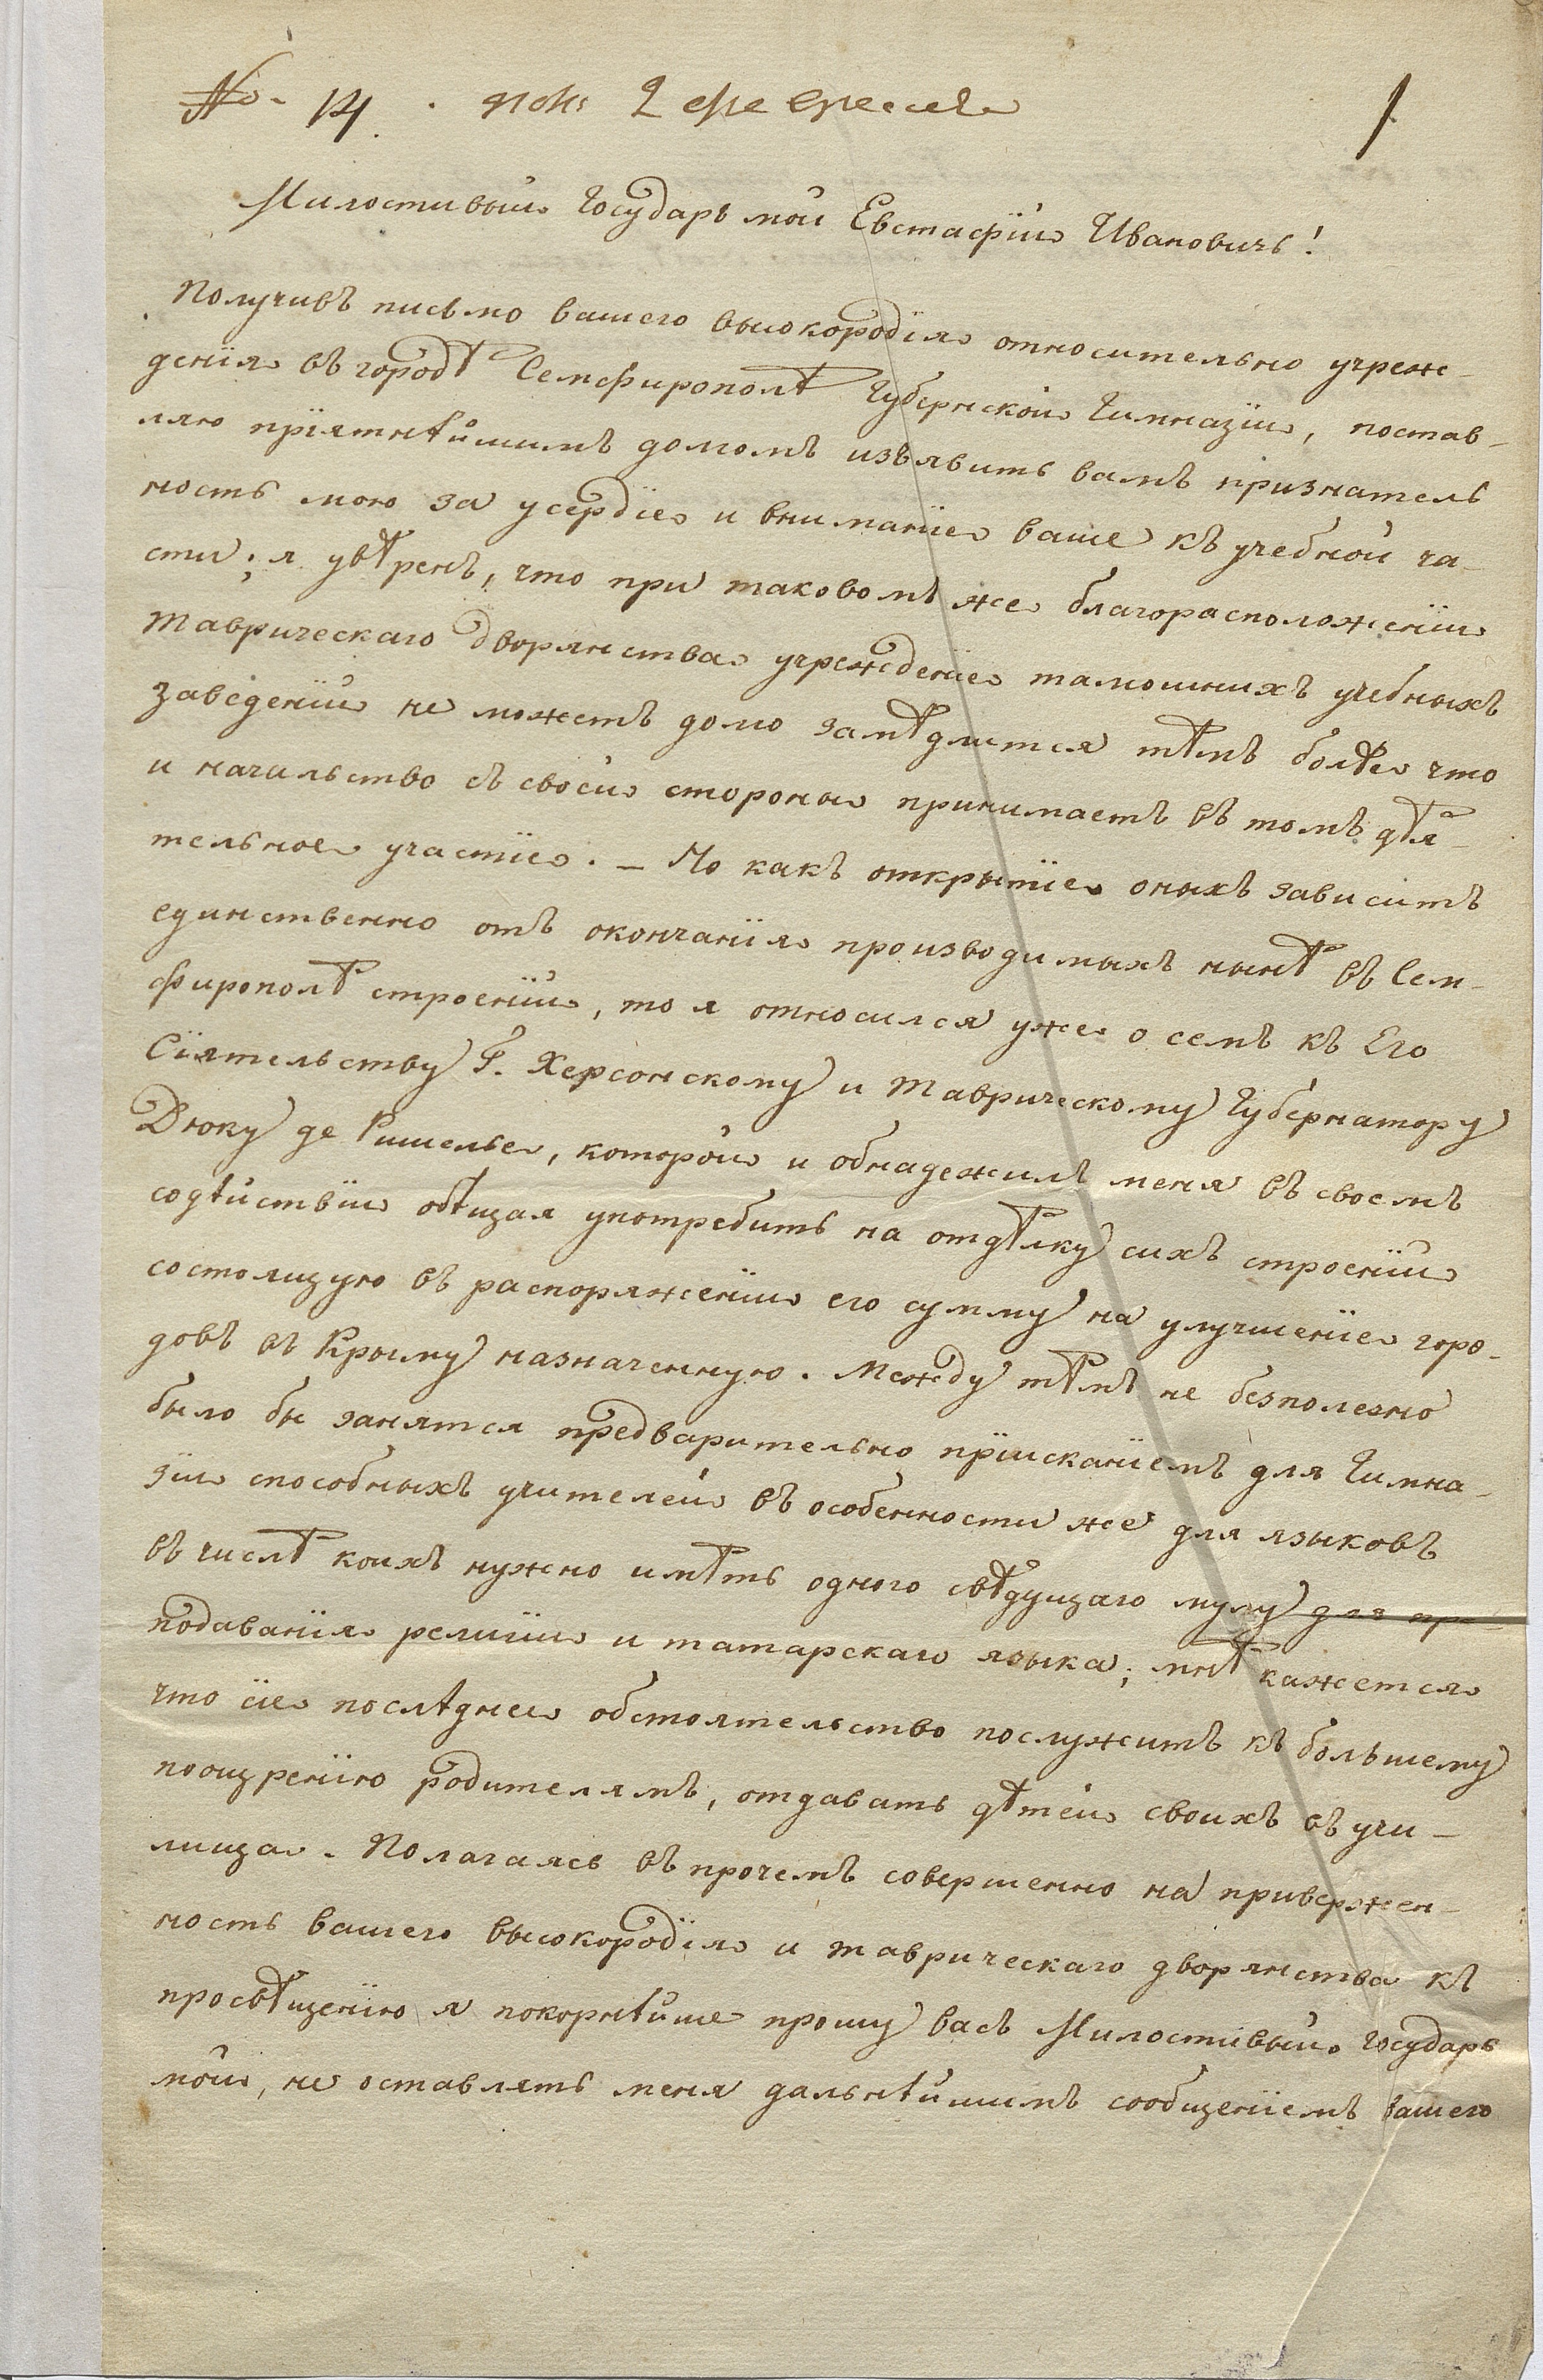 № 14. 1
Милостивый Государь мой Евстафїй Ивановичь!
Получивъ письмо вашего высокородїя относительно учреж-
денїя въ городѣ Семфирополѣ Губернской Гимназїи, постав-
ляю прїятнѣйшимъ долгомъ изъявить вамъ признатель
ность мою за усердїе и вниманїе ваше къ учебной ча-
сти; я увѣренъ, что при таковомъ же благорасположенїи
Таврическаго дворянства учрежденїе тамошнихъ учебныхъ
заведенїй не можетъ долго замѣдлится тѣмъ болѣе что
и начальство съ своей стороны принимаетъ въ томъ дѣя-
тельное участїе. – Но какъ открытїе оныхъ зависитъ
единственно отъ окончанїя производимыхъ нынѣ въ Сем-
фирополѣ строенїй, то я относился уже о семъ къ Его
Сїятельству Г. Херсонскому и Таврическому Губернатору
Дюку де Ришелье, которой и обнадежилъ меня въ своемъ
содѣйствїи обѣщая употребить на отдѣлку сихъ строенїй
состоящую въ распоряженїи его сумму на улучшенїе горо-
довъ въ Крыму назначенную. Между тѣмъ не безполезно
было бы занятся предварительно прїисканїемъ для Гимна-
зїи способныхъ учителей въ особенности же для языковъ
въ числѣ коихъ нужно имѣть одного свѣдущаго мулу для пре-
подаванїя религїи и татарскаго языка; мнѣ кажется
что сїе послѣднее обстоятельство послужитъ къ большему
поощренїю родителямъ, отдавать дѣтей своихъ въ учи-
лища. Полагаясь въ прочемъ совершенно на привержен-
ность вашего высокородїя и таврическаго дворянства къ
просвѣщенїю я покорнѣйше прошу васъ Милостивый Государь
мой, не оставлять меня дальнѣйшимъ сообщенїемъ вашего